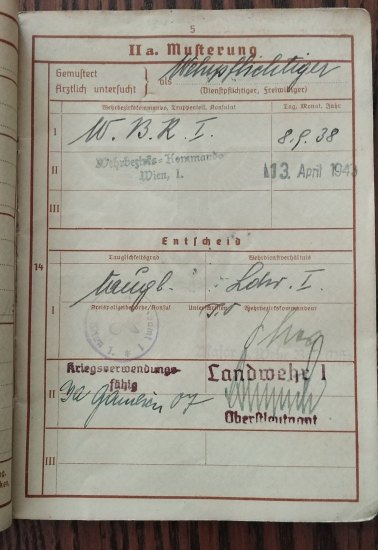 5
II a. Musterung
Gemustert
Ärztlich untersucht
als Wehrpflichtiger
(Dienstpflichtiger, Freiwilliger)
Wehrbezirkskommando, Truppenteil, Konsulat
Tag, Monat, Jahr
I
W. B. K. I.
8. 9. 38
II
Wehrbezirks-Kommando
Wien, I.
13. April 194
III
Entscheid
Tauglichkeitsgrad
Wehrdienstverhältnis
14
I
taugl.
Ldw. I.
Kreispolizeibehörde/Konsul
Unterschriften
Wehrbezirkskommandeur
Kriegsverwendungs-
fähig
Landwehr I
II
Oberstleutnant
III